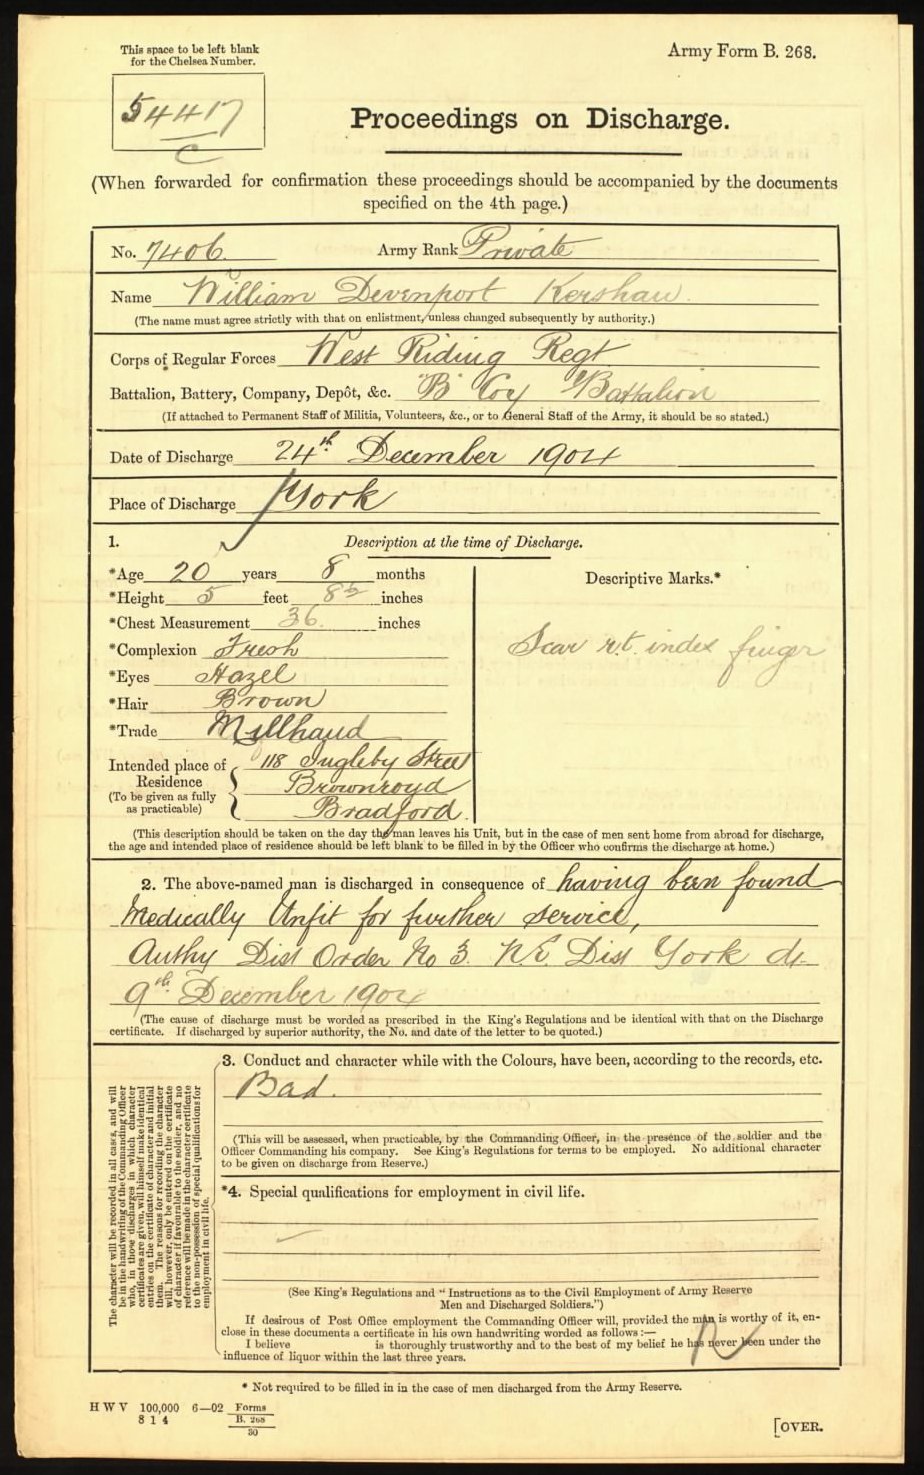 This space to be left blank
for the Chelsea Number.
Army Form B. 268.
54417
C
Proceedings on Discharge.
(When forwarded for confirmation these proceedings should be accompanied by the documents
specified on the 4th page.)
No. 7406. Army Rank Private
Name William Devenport Kershaw.
(The name must agree strictly with that on enlistment, unless changed subsequently by authority.)
Corps of Regular Forces West Riding Regt
Battalion, Battery, Company, Depôt, &c. "B" Coy Battalion
(If attached to Permanent Staff of Militia, Volunteers, &c., or to General Staff of the Army, it should be so stated.)
Date of Discharge 24th December 1904
Place of Discharge York
1. Description at the time of Discharge.
*Age 20 years 8 months
*Height 5 feet 8½ inches
*Chest Measurement 36 inches
*Complexion Fresh
*Eyes Hazel
*Hair Brown
*Trade Millhand
Intended place of Residence (To be given as fully as practicable)
118 Ingleby Street
Brownroyd
Bradford.
Descriptive Marks.*
Scar rt. index finger
(This description should be taken on the day the man leaves his Unit, but in the case of men sent home from abroad for discharge,
the age and intended place of residence should be left blank to be filled in by the Officer who confirms the discharge at home.)
2. The above-named man is discharged in consequence of having been found
Medically Unfit for further service,
Authy Dist Order No 3. N.E. Dist York d/-
9th December 1904
(The cause of discharge must be worded as prescribed in the King's Regulations and be identical with that on the Discharge
certificate. If discharged by superior authority, the No. and date of the letter to be quoted.)
The character will be recorded in all cases, and will
be in the handwriting of the Commanding Officer
who, in those discharges in which character
certificates are given, will himself make identical
entries on the certificate of character and initial
them. The reasons for recording the character
will, however, only be entered on the certificate
of character if favourable to the soldier, and no
reference will be made in the character certificate
to the non-possession of special qualifications for
employment in civil life.
3. Conduct and character while with the Colours, have been, according to the records, etc.
Bad.
(This will be assessed, when practicable, by the Commanding Officer, in the presence of the soldier and the
Officer Commanding his company. See King's Regulations for terms to be employed. No additional character
to be given on discharge from Reserve.)
*4. Special qualifications for employment in civil life.
(See King's Regulations and "Instructions as to the Civil Employment of Army Reserve
Men and Discharged Soldiers.")
If desirous of Post Office employment the Commanding Officer will, provided the man is worthy of it, en-
close in these documents a certificate in his own handwriting worded as follows:—
I believe is thoroughly trustworthy and to the best of my belief he has never been under the
influence of liquor within the last three years.
* Not required to be filled in in the case of men discharged from the Army Reserve.
H W V 100,000 6—02 Forms
8 1 4 B. 268
30
[OVER.